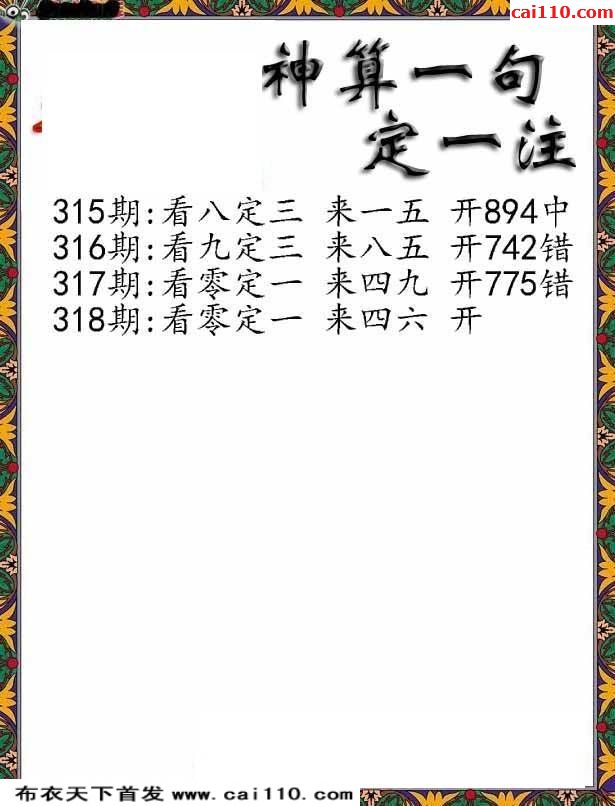 cai110.com
神算一句
定一注
315期:看八定三 来一五 开894中
316期:看九定三 来八五 开742错
317期:看零定一 来四九 开775错
318期:看零定一 来四六 开
布衣天下首发 www.cai110.com